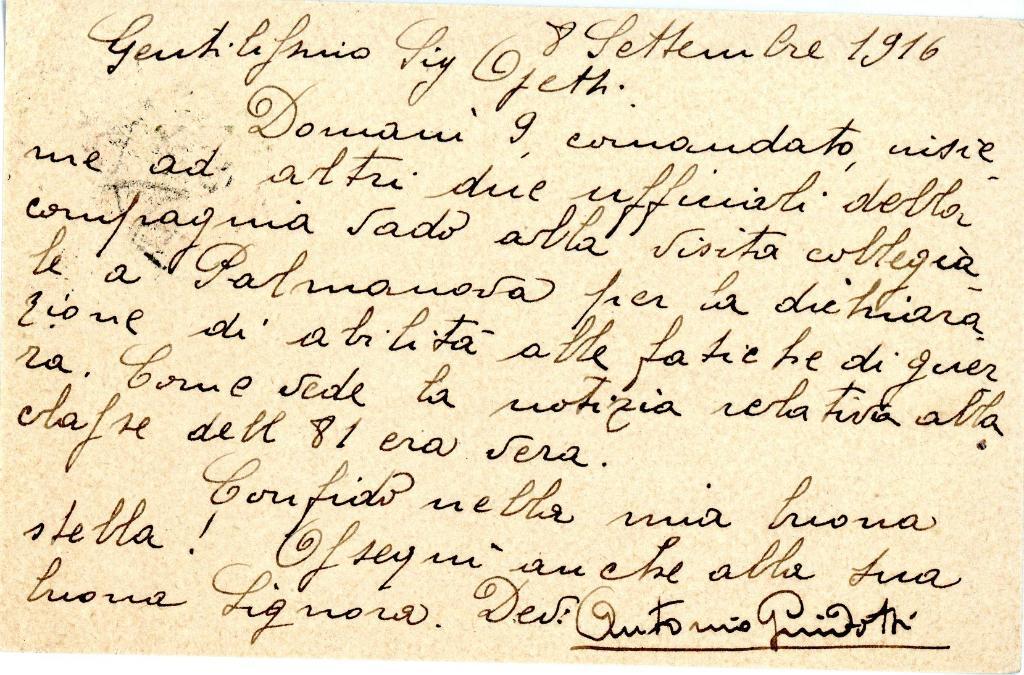 8 Settembre 1916
Gentilissimo Sig Ojetti.
Domani 9, comandato, insie-
me ad altri due ufficiali della
compagnia vado alla visita collegia
le a Palmanova per la dichiara-
zione di abilità alle fatiche di guer
ra. Come vede la notizia relativa alla
classe dell 81 era vera.
Confido nella mia buona
stella! Ossequi anche alla sua
buona Signora. Dev: Antonio Guidotti